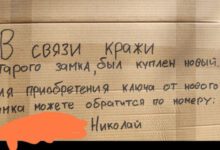 В СВЯЗИ КРАЖИ
тарого замка, был куплен новый.
ля приобретения ключа от нового
мка можете обратится по номеру:
Николай